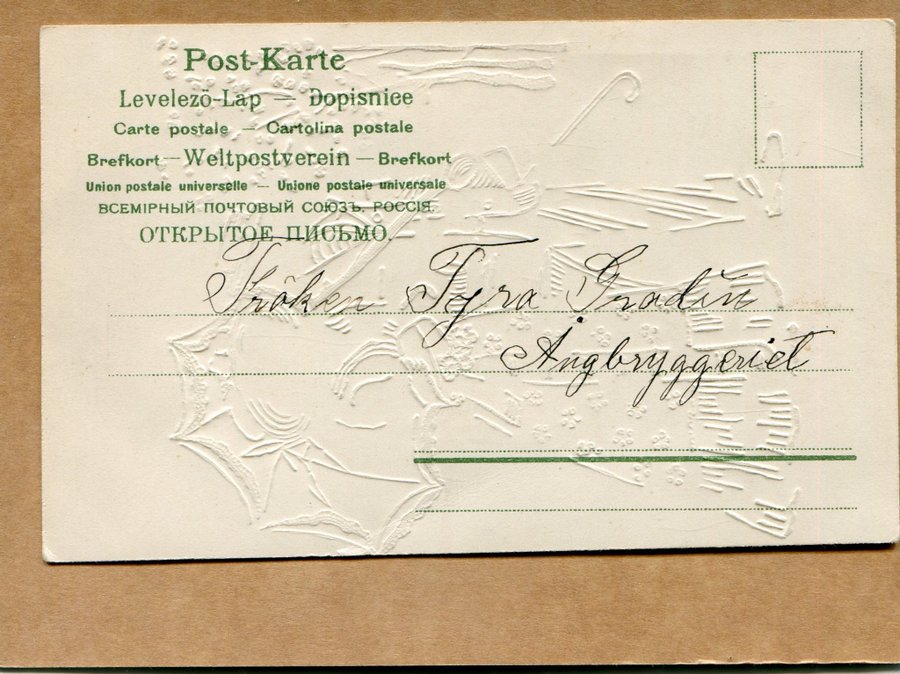 Post-Karte
Levelező-Lap — Dopisnice
Carte postale — Cartolina postale
Brefkort — Weltpostverein — Brefkort
Union postale universelle — Unione postale universale
ВСЕМІРНЫЙ ПОЧТОВЫЙ СОЮЗЪ. РОССІЯ.
ОТКРЫТОЕ ПИСЬМО.
Fröken Tyra Gradin
Ångbryggeriet